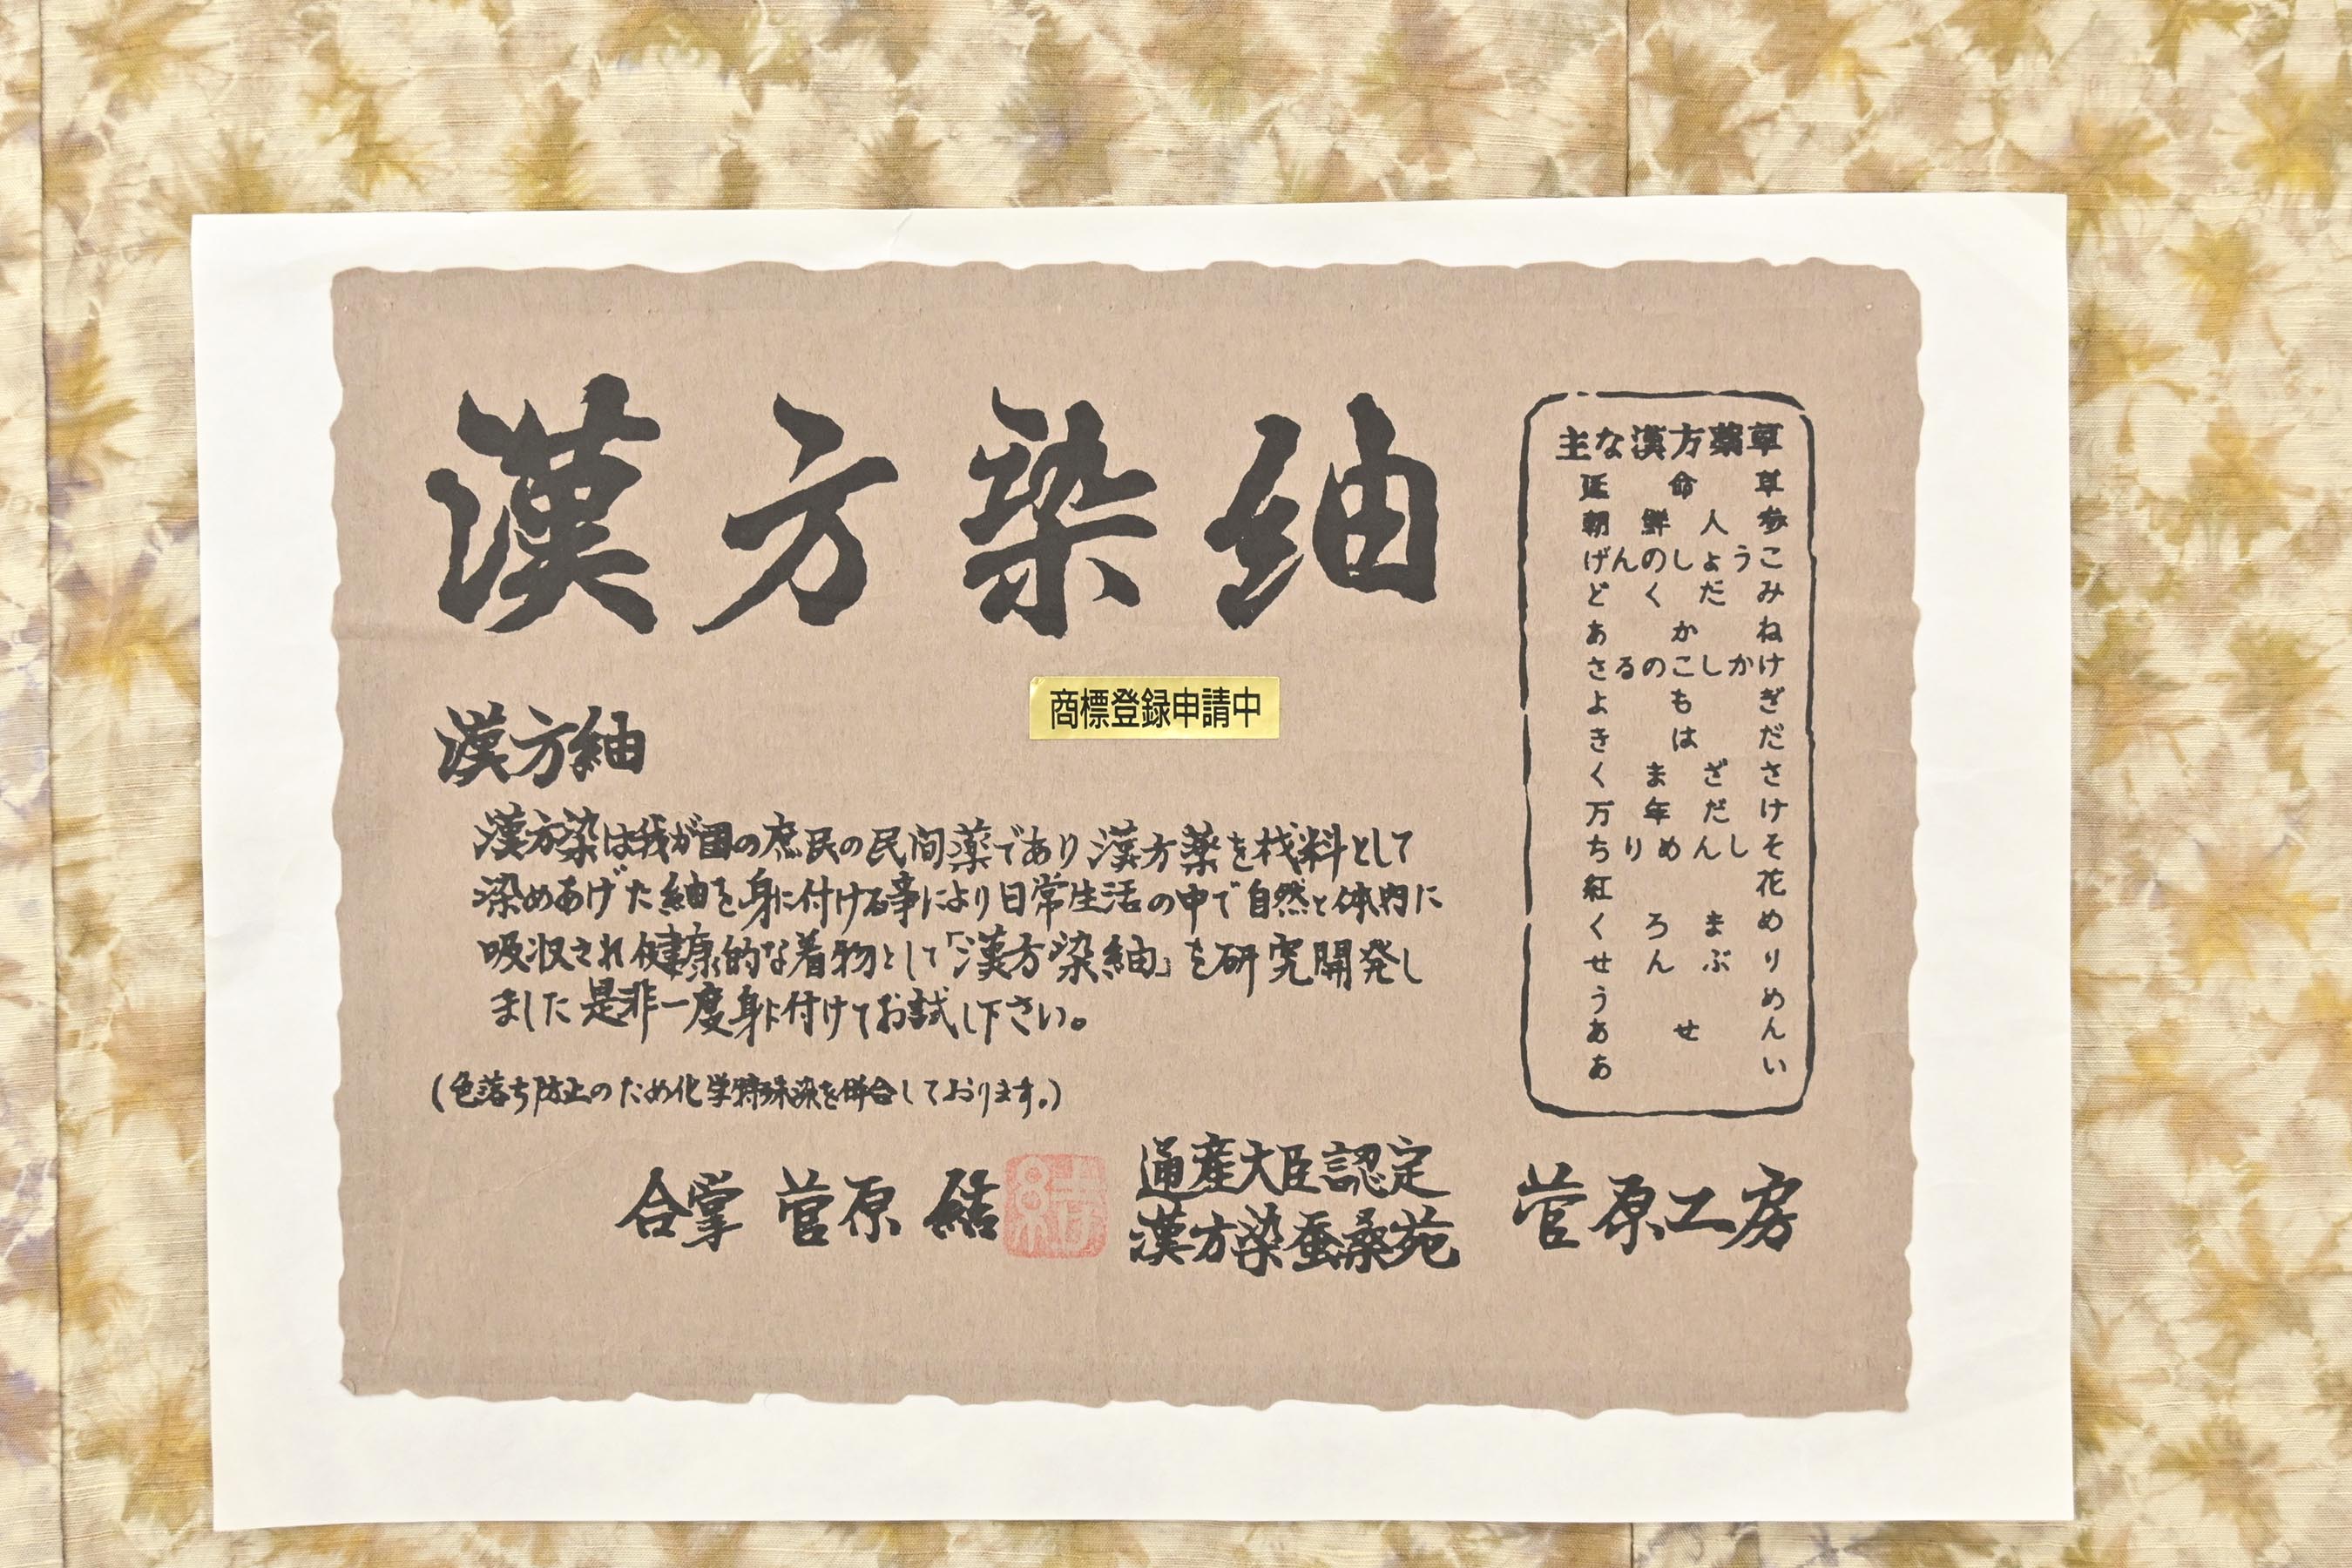 漢方染紬
商標登録申請中
漢方紬
漢方染は我が国の庶民の民間薬であり漢方薬を材料として
染めあげた紬を身に付ける事により日常生活の中で自然と体内に
吸収され健康的な着物として「漢方染紬」を研究開発し
ました是非一度身に付けてお試し下さい。
(色落ち防止のため化学特殊染を併合しております。)
主な漢方薬草
延命草
朝鮮人参
げんのしょうこ
どくだみ
あかね
さるのこしかけ
よもぎ
きはだ
くまざさ
万年だけ
ちりめんしそ
紅花
くろまめ
せんぶり
うめ
あせん
あい
合掌 菅原 結
通産大臣認定
漢方染蚕桑苑
菅原工房